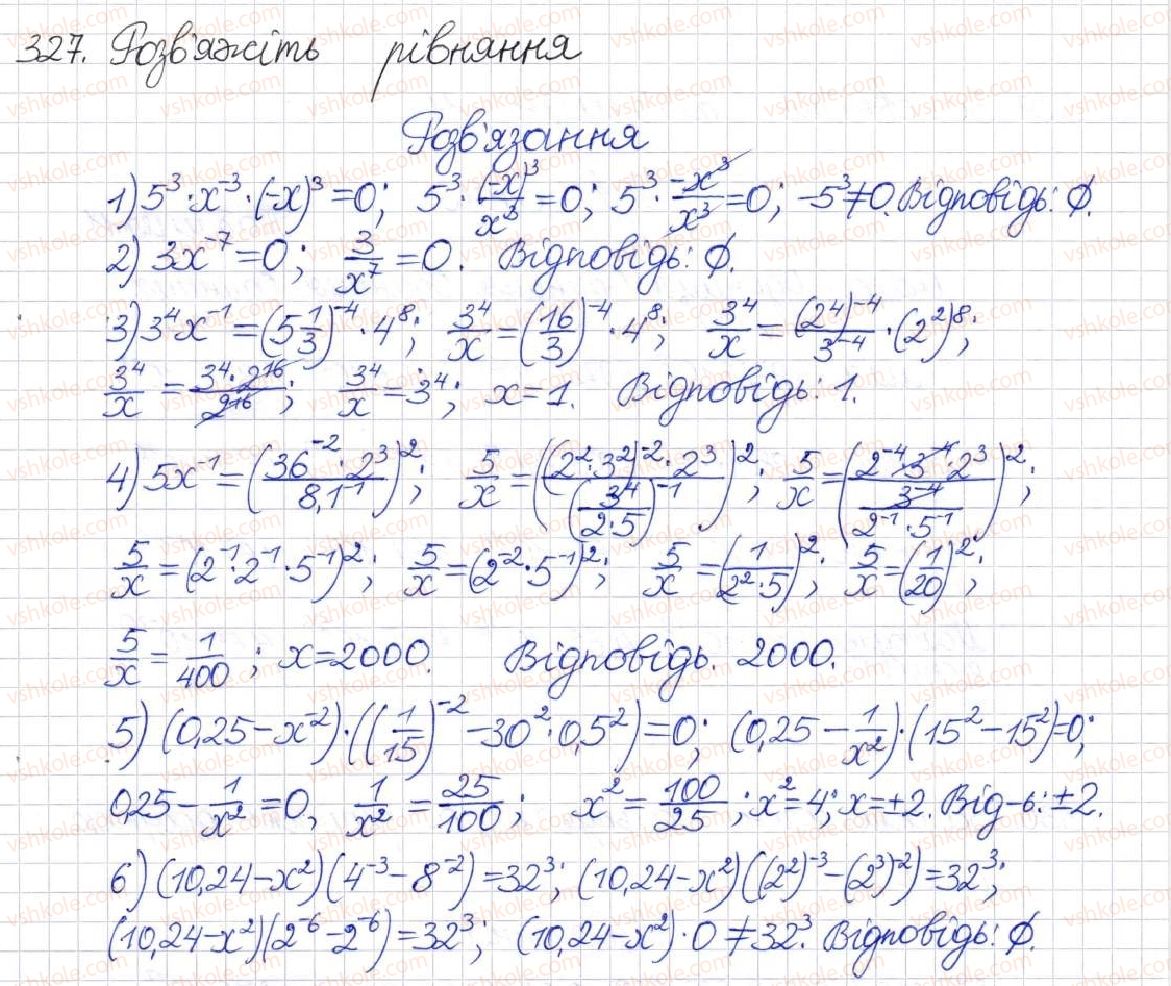 327. Розв'яжіть рівняння
Розв'язання
1) 5³·x⁻³·(-x)³=0; 5³·(-x)³/x³=0; 5³·-x³/x³=0; -5³≠0. Відповідь: ∅.
2) 3x⁻⁷=0; 3/x⁷=0. Відповідь: ∅.
3) 3⁴x⁻¹=(5 1/3)⁻⁴·4⁸; 3⁴/x=(16/3)⁻⁴·4⁸; 3⁴/x=(2⁴)⁻⁴/3⁻⁴·(2²)⁸;
3⁴/x=3⁴·2¹⁶/2¹⁶; 3⁴/x=3⁴; x=1. Відповідь: 1.
4) 5x⁻¹=(36⁻²·2³/8,1⁻¹)²; 5/x=((2²·3²)⁻²·2³/(3⁴/2·5)⁻¹)²; 5/x=(2⁻⁴·3⁻⁴·2³/(3⁻⁴/2⁻¹·5⁻¹))²;
5/x=(2⁻¹·2⁻¹·5⁻¹)²; 5/x=(2⁻²·5⁻¹)²; 5/x=(1/2²·5)²; 5/x=(1/20)²;
5/x=1/400; x=2000. Відповідь. 2000.
5) (0,25-x⁻²)·((1/15)⁻²-30²·0,5²)=0; (0,25-1/x²)·(15²-15²)=0;
0,25-1/x²=0, 1/x²=25/100; x²=100/25; x²=4; x=±2. Від-ь: ±2.
6) (10,24-x²)(4⁻³-8⁻²)=32³; (10,24-x²)((2²)⁻³-(2³)⁻²)=32³;
(10,24-x²)(2⁻⁶-2⁻⁶)=32³; (10,24-x²)·0≠32³. Відповідь: ∅.